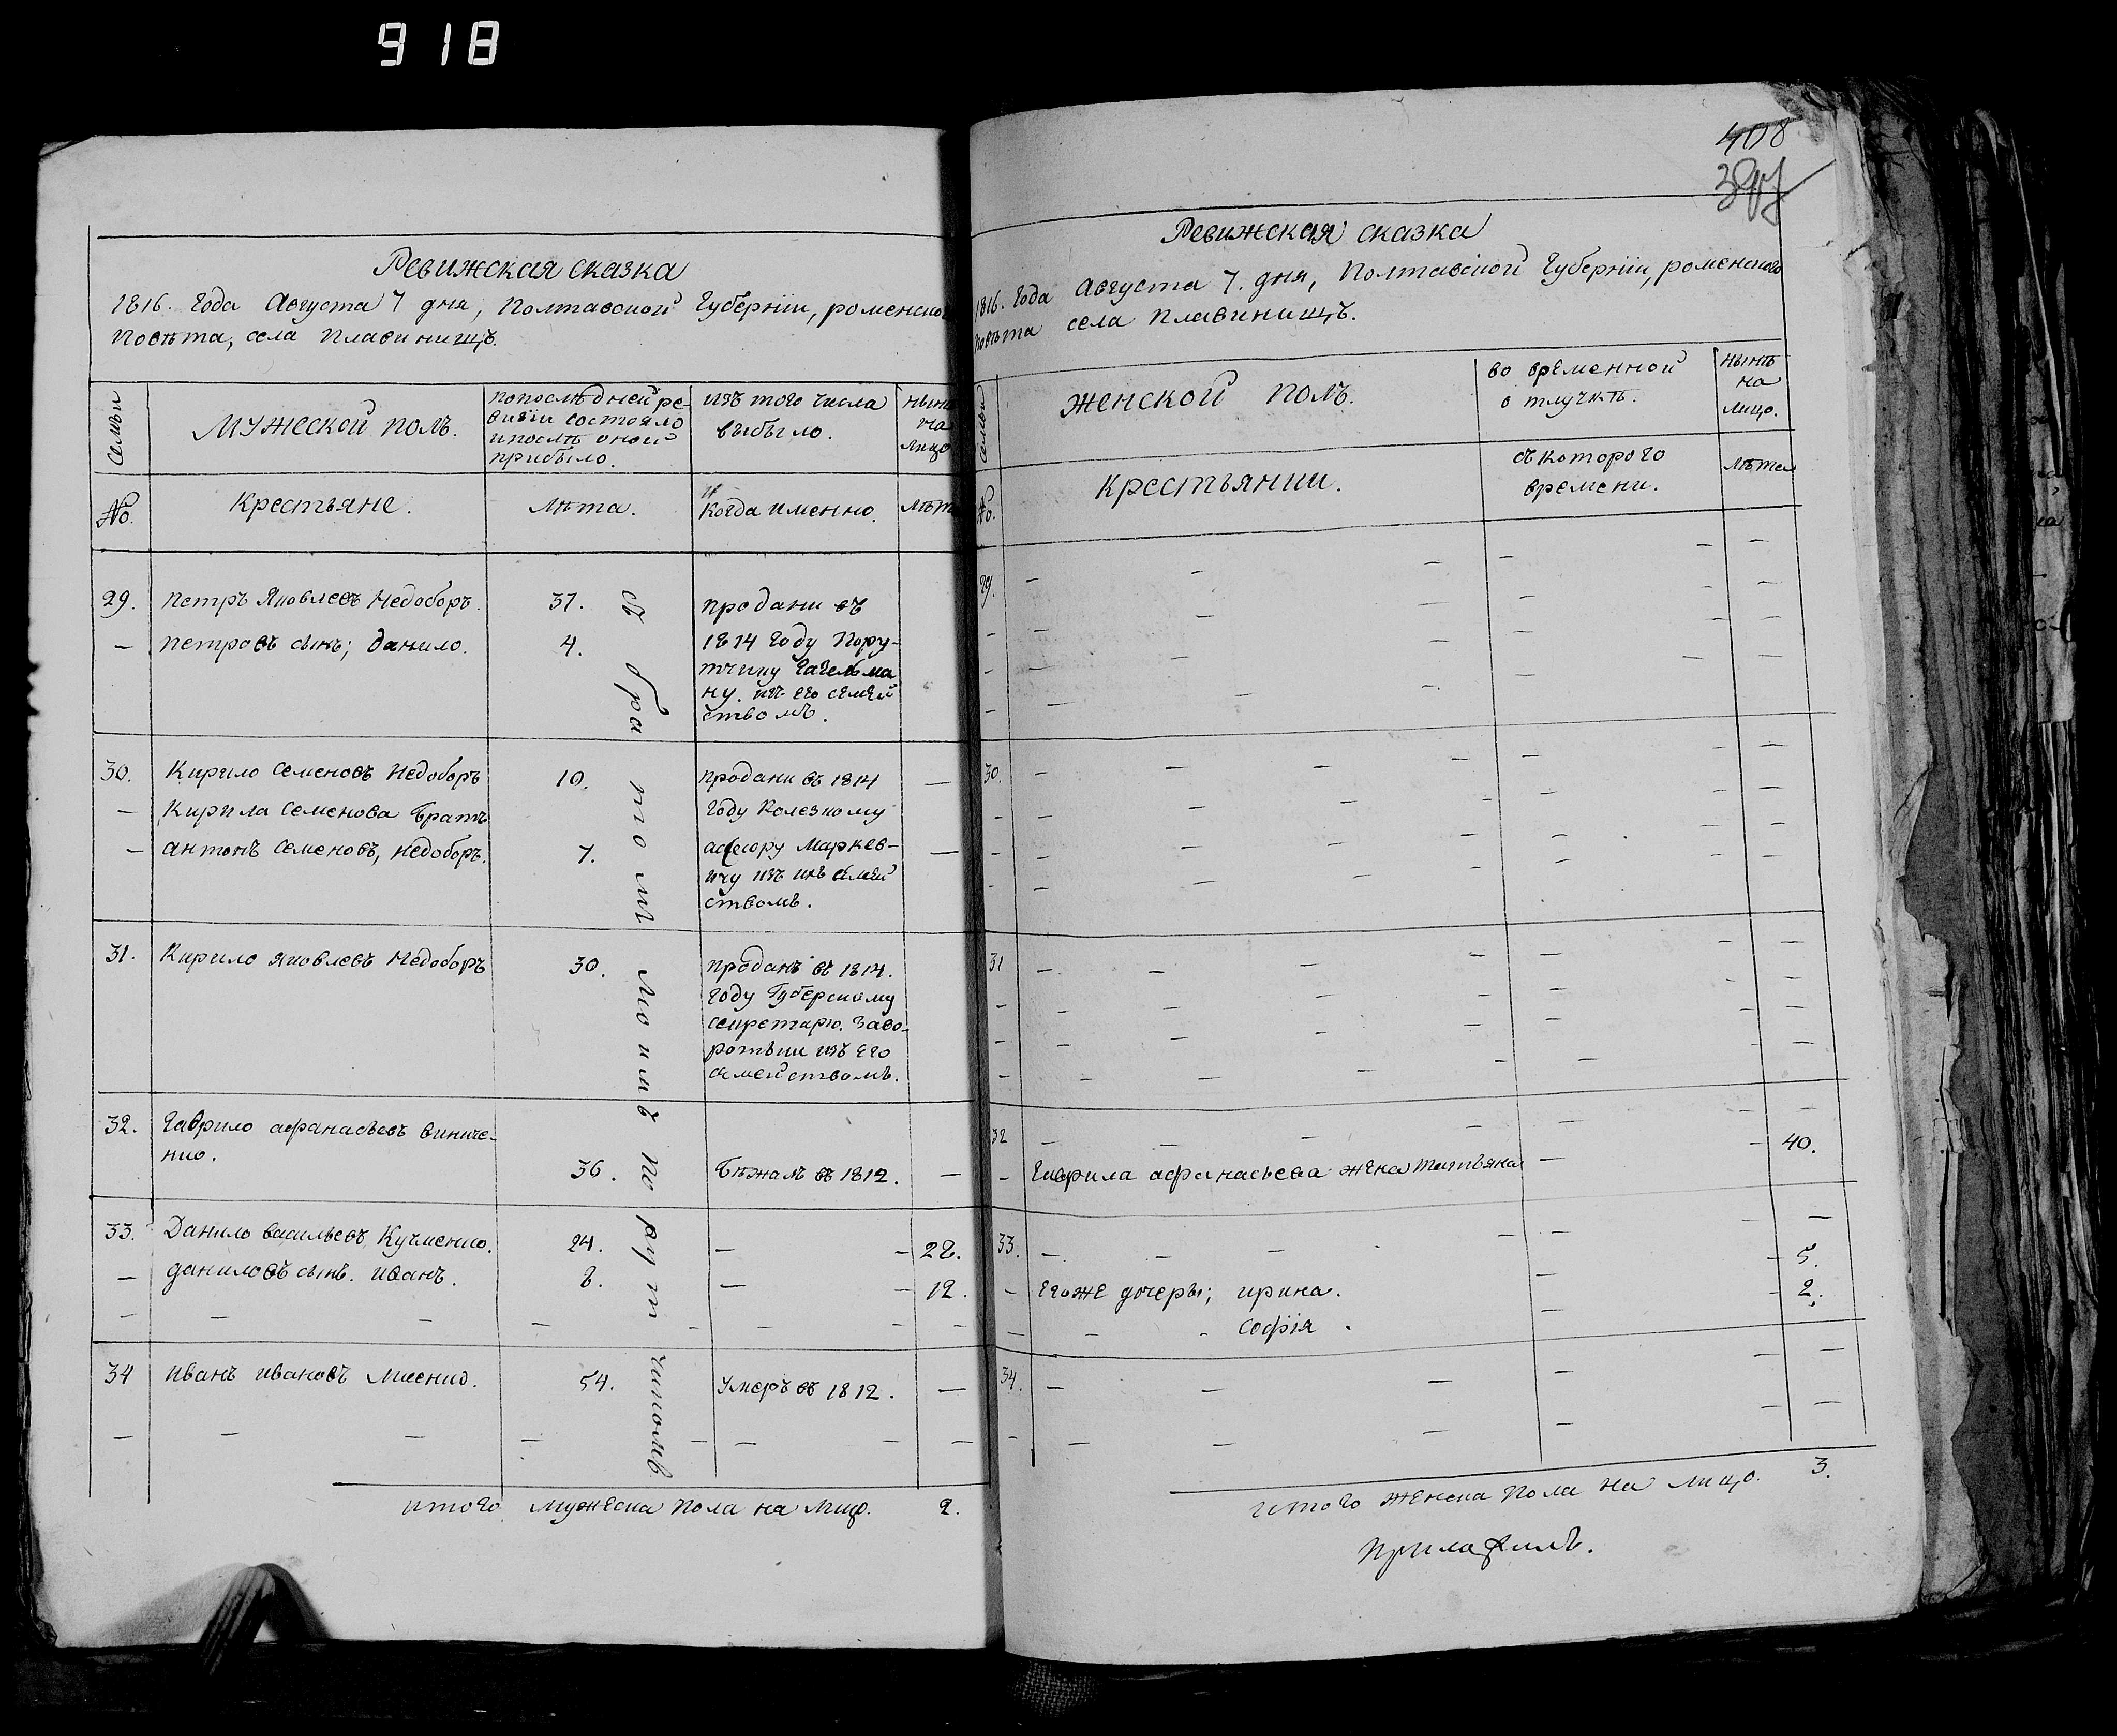 918
Ревижская сказка
1816. Года Августа 7 дня, Полтавской Губерніи, роменско
повѣта, села Плавинищъ.
Семьи
Мужеской полъ.
попослѣдней ре-
визіи состояло
ипослѣ оной
прибыло.
изъ того числа
выбыло.
нынѣ
на
лицо
№.
Крестьяне.
Лѣта.
Когда именно.
Лѣт
29. Петръ Яковлевъ Недоборъ. 37. продани въ
— Петровъ сынъ; Данило. 4. 1814 году Пору-
тчику
ну. изъ его семей
ствомъ.
30. Кирило Семеновъ Недоборъ 10. продани въ 1814 —
— Кирила Семенова братъ году Колезкому
— антонъ Семеновъ, недоборъ. 7. ассесору Маркев- —
ичу изъ ихъ семей
ствомъ.
31. Кирило Яковлевъ Недоборъ 30. проданъ въ 1814.
году Губерскому
секретарю. Заво-
ротьки изъ его
семействомъ.
32. Гаврило афанасьевъ виниче-
нко. 36. бѣжалъ въ 1812. —
33. Данило васильевъ Кучменко. 24. — — 28.
— даниловъ сынъ. иванъ. 8. — — 12.
34 иванъ ивановъ 54. Умеръ въ 1812. —
итого мужеска пола на лицо. 2.
408
397
Ревижская сказка
1816. Года Августа 7. дня, Полтавской Губерніи, роменского
повѣта села плавинищъ.
семьи
Женской полъ.
во временной
отлучкѣ.
нынѣ
на
лицо.
№.
Крестьянки.
съкоторого
времени.
Лѣта
29.
30.
31
32 — — — — — — 40.
— Гаврила афанасьева жена татьяна —
33. — — — — — — 5.
— Егоже дочеры; ирина. — — 2.
— — — софія. —
34.
итого женска пола на лицо. 3.